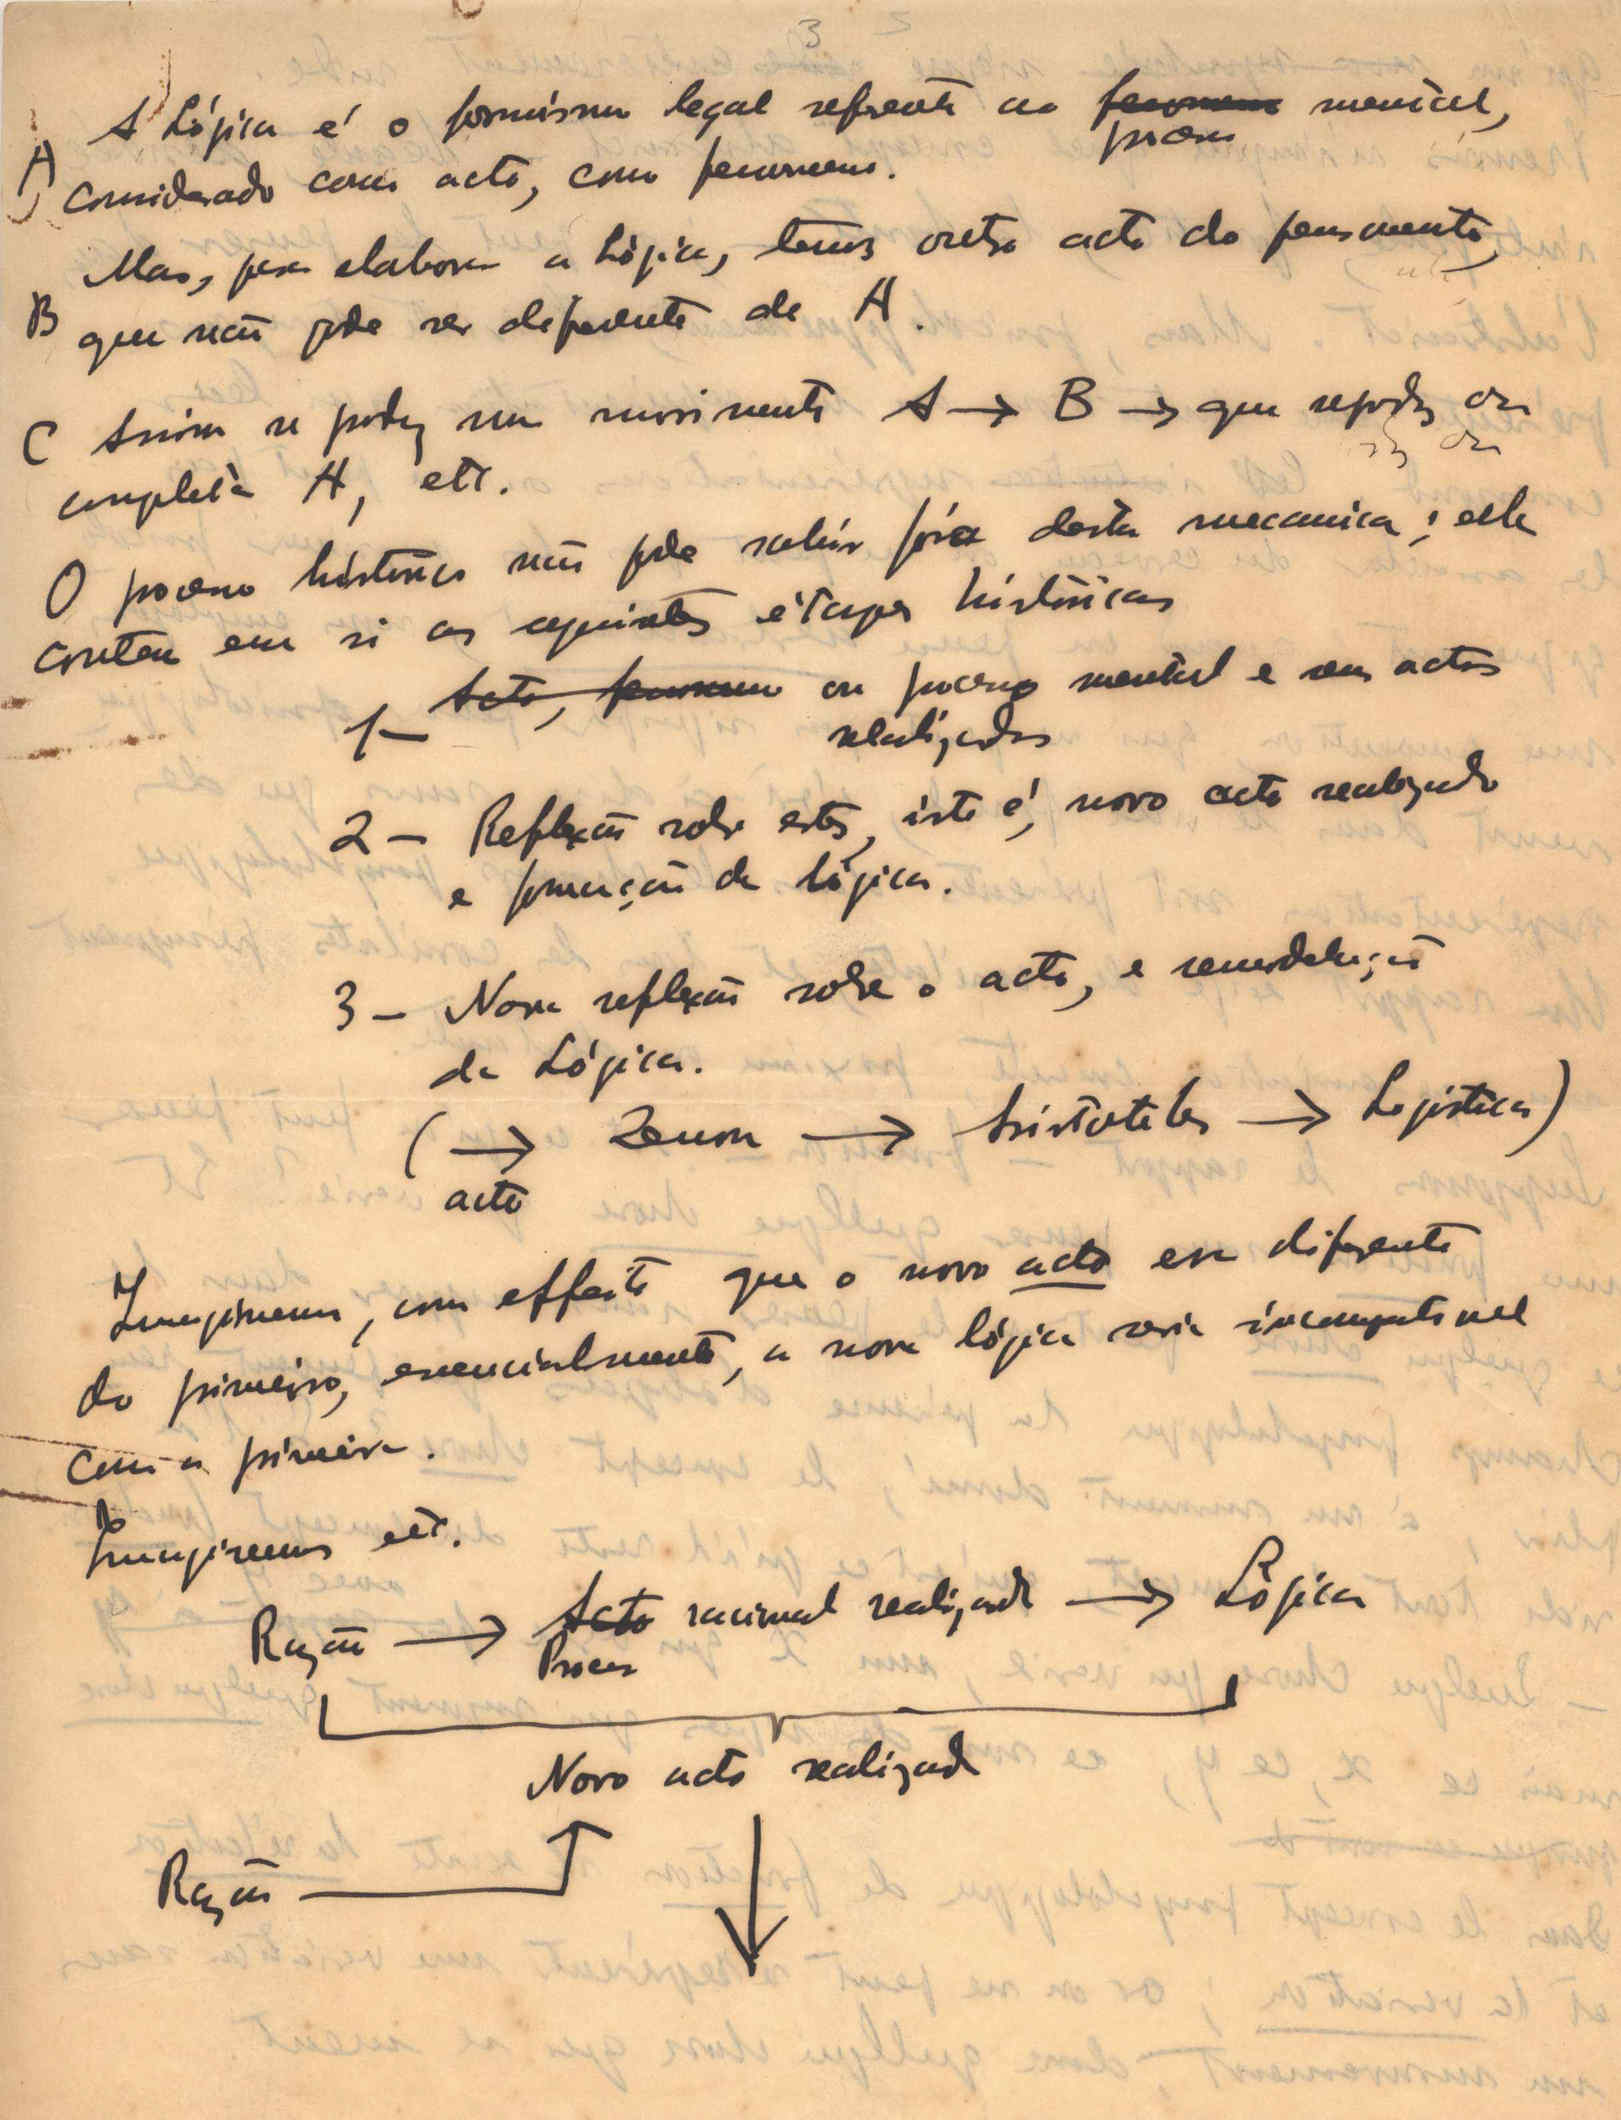 3
A Lógica é o formismo legal referente ao fenomeno mental,
processo
A considerado como acto, como fenomeno.
Mas, para elaborar a Lógica, temos outro acto do pensamento,
B que não pode ser diferente de A.
C Assim se produz um movimento A → B → que reproduz ou
completa A, etc.
O processo histórico não pode sahir fóra desta mecanica; elle
contem em si as seguintes étapes históricas
1 – Acto, fenomeno ou processo mental e seus actos
realizados
2 – Reflexão sobre estes, isto é, novo acto realizado
e formação da lógica.
3 – Nova reflexão sobre o acto, e remodelação
da Lógica.
( → Zenon → Aristoteles → Logistica)
acto
Imaginemos, com effeito que o novo acto era diferente
do primeiro, essencialmente, a nova lógica seria incompativel
com a primeira.
Imaginemos etc.
Razão → Acto racional realizado → Lógica
Processo
Novo acto realizado
Razão